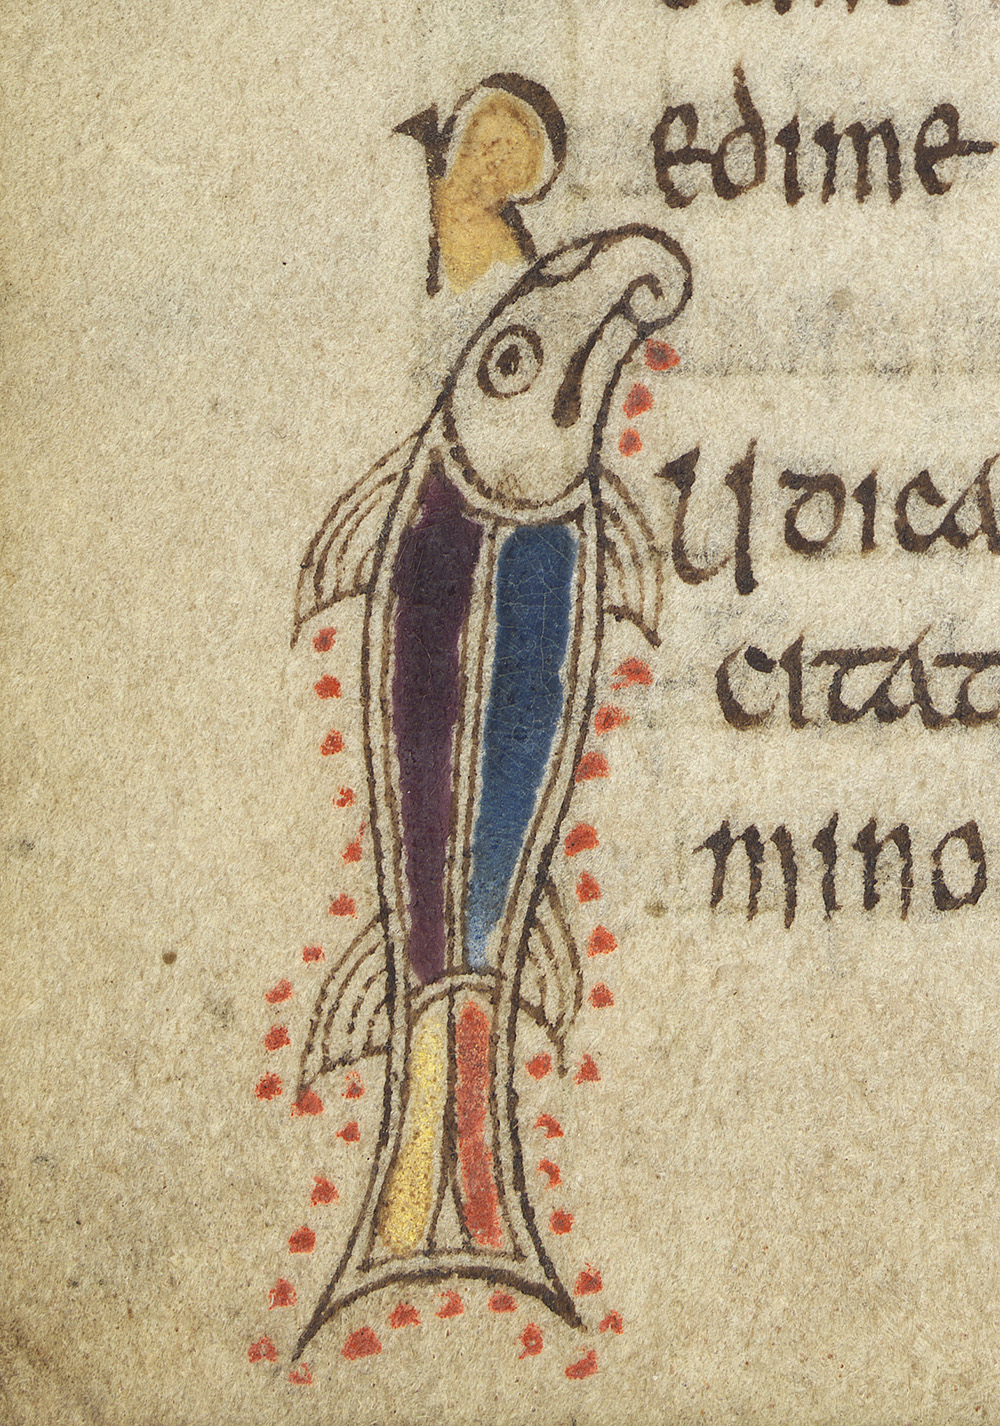 Redime
Iudica
citat
mino